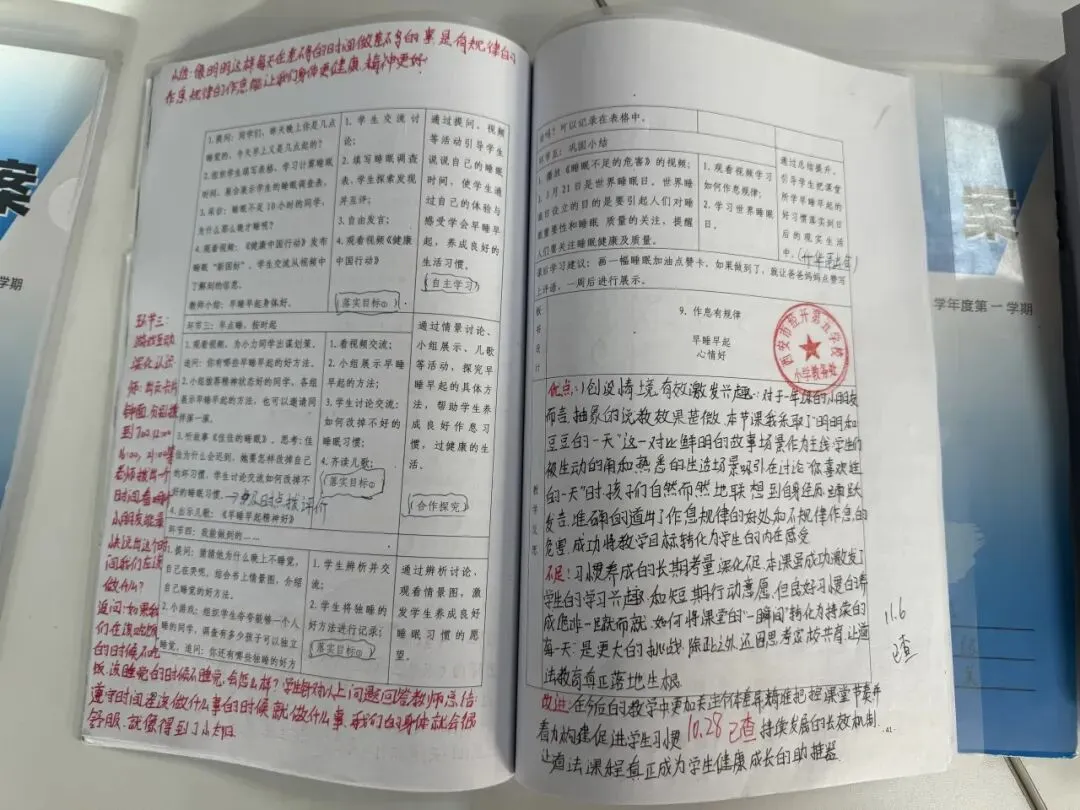 小结:像明明这样每天在差不多的时间做差不多的事,是有规律的
作息,规律的作息能让我们身体更健康,精神更好.
1.提问:同学们,昨天晚上你是几点
睡觉的,今天早上又是几点起的?
2.组织学生填写表格,学习计算睡眠
时间,集合展示学生的睡眠调查表。
3.采访:睡眠不足10小时的同学,
为什么那么晚才睡呢?
4.观看视频:《健康中国行动》发布
睡眠“新国标”,学生交流从视频中
了解到的信息。
教师小结:早睡早起身体好。
1.学生交流讨
论;
2.填写睡眠调查
表,学生探索发现
并互评;
3.自由发言;
4.观看视频《健康
中国行动》
(落实目标①)
通过提问、视频
等活动引导学生
说说自己的睡眠
时间,使学生通
过自己的体验与
感受学会早睡早
起,养成良好的
生活习惯。
(自主学习)
环节三:早点睡,按时起
1.观看视频,为小力同学出谋划策。
追问:你有哪些早睡早起的好方法。
2.小组推荐精神状态好的同学,各组
展示早睡早起的方法,也可以邀请同
伴演一演。
3.听故事《佳佳的睡眠》,思考:佳
佳为什么会迟到,她要怎样改掉自己
的坏习惯,学生讨论交流如何改掉不
好的睡眠习惯。→及时点拨评价
4.出示儿歌:《早睡早起精神好》
1.看视频交流;
2.小组展示早睡
早起的方法;
3.学生讨论交流:
如何改掉不好的
睡眠习惯;
4.齐读儿歌;
(落实目标②)
通过情景讨论、
小组展示、儿歌
等活动,探究早
睡早起的具体方
法,帮助学生养
成良好作息习
惯,过健康的生
活。
(合作探究)
环节四:我能做到的……
1.提问:猜猜他为什么晚上不睡觉,
自己在哭呢,结合书上情景图,介绍
自己睡觉的好方法。
2.小游戏:组织学生夸夸能够一个人
睡的同学,调查有多少孩子可以独立
睡觉,追问:你还有哪些独睡的好方
1.学生辨析并交
流;
2.学生将独睡的
好方法进行记录;
(落实目标②)
通过辨析讨论、
观看情景图,激
发学生养成良好
睡眠习惯的愿
望。
环节三:
游戏互动
深化认识
师:出示卡片
钟面,分别拨
到7:00,12:00
16:00,21:00等
老师拨出一个
时间,看哪个
小朋友能最
快说出这个时
间我们应该
做什么?
追问:如果我
们在该吃饭
的时候不吃
饭,该睡觉的时候不睡觉,会怎么样?学生针对以上问题回答教师总结:
遵守时间是该做什么事的时候就做什么事,我们的身体就会很
舒服,就像得到了小太阳.
法吗?可以记录在表格中。
环节五:巩固小结
1.播放《睡眠不足的危害》的视频;
2.3月21日是世界睡眠日。世界睡
眠日设立的目的是要引起人们对睡
眠重要性和睡眠 质量的关注,提醒
人们要关注睡眠健康及质量。
1.观看视频学习
如何作息规律;
2.学习世界睡眠
日。
通过总结提升,
引导学生把课堂
所学早睡早起的
好习惯落实到日
后的现实生活
中。
课后学习建议:画一幅睡眠加油点赞卡,如果做到了,就让爸爸妈妈点赞写
上评语,一周后进行展示。
板书设计
9.作息有规律
早睡早起
心情好
西安市经开第五学校
小学教务处
教学反思
优点:1创设情境,有效激发兴趣:对于一年级的小朋友
而言,抽象的说教效果甚微,本节课我采取了“明明和
豆豆的一天”这一对比鲜明的故事场景作为主线,学生们
被生动的画面和熟悉的生活场景吸引,在讨论“你喜欢谁
的一天”时,孩子们自然而然地联想到自身经历,踊跃
发言,准确的道出了作息规律的好处和不规律作息的
危害,成功将教学目标转化为学生的内在感受
不足:习惯养成的长期考量深化不足,本课虽成功激发了
学生的学习兴趣和短期行动意愿,但良好习惯的养
成绝非一蹴而就,如何将课堂的“一瞬间”转化为持续的
“每一天”是更大的挑战,除此之外,还因思考家校共育,让道
法教育真正落地生根.
改进:在今后的教学中更加关注个体差异,精准把握课堂节奏,并
着力构建促进学生习惯 10.28 已查 持续发展的长效机制.
让道法课程真正成为学生健康成长的助推器.
41
11.6
已查
案
学期
案
学年度第一学期